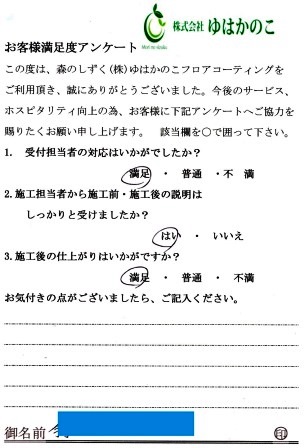 株式会社 ゆはかのこ
お客様満足度アンケート
この度は、森のしずく(株)ゆはかのこフロアコーティングを
ご利用頂き、誠にありがとうございました。今後のサービス、
ホスピタリティ向上の為、お客様に下記アンケートへご協力を
賜りたくお願い申し上げます。 該当欄を○で囲って下さい。
1. 受付担当者の対応はいかがでしたか?
満足 ・ 普通 ・ 不 満
2.施工担当者から施工前・施工後の説明は
しっかりと受けましたか?
はい ・ いいえ
3.施工後の仕上がりはいかがですか?
満足 ・ 普通 ・ 不満
お気付きの点がございましたら、ご記入ください。
御名前
印